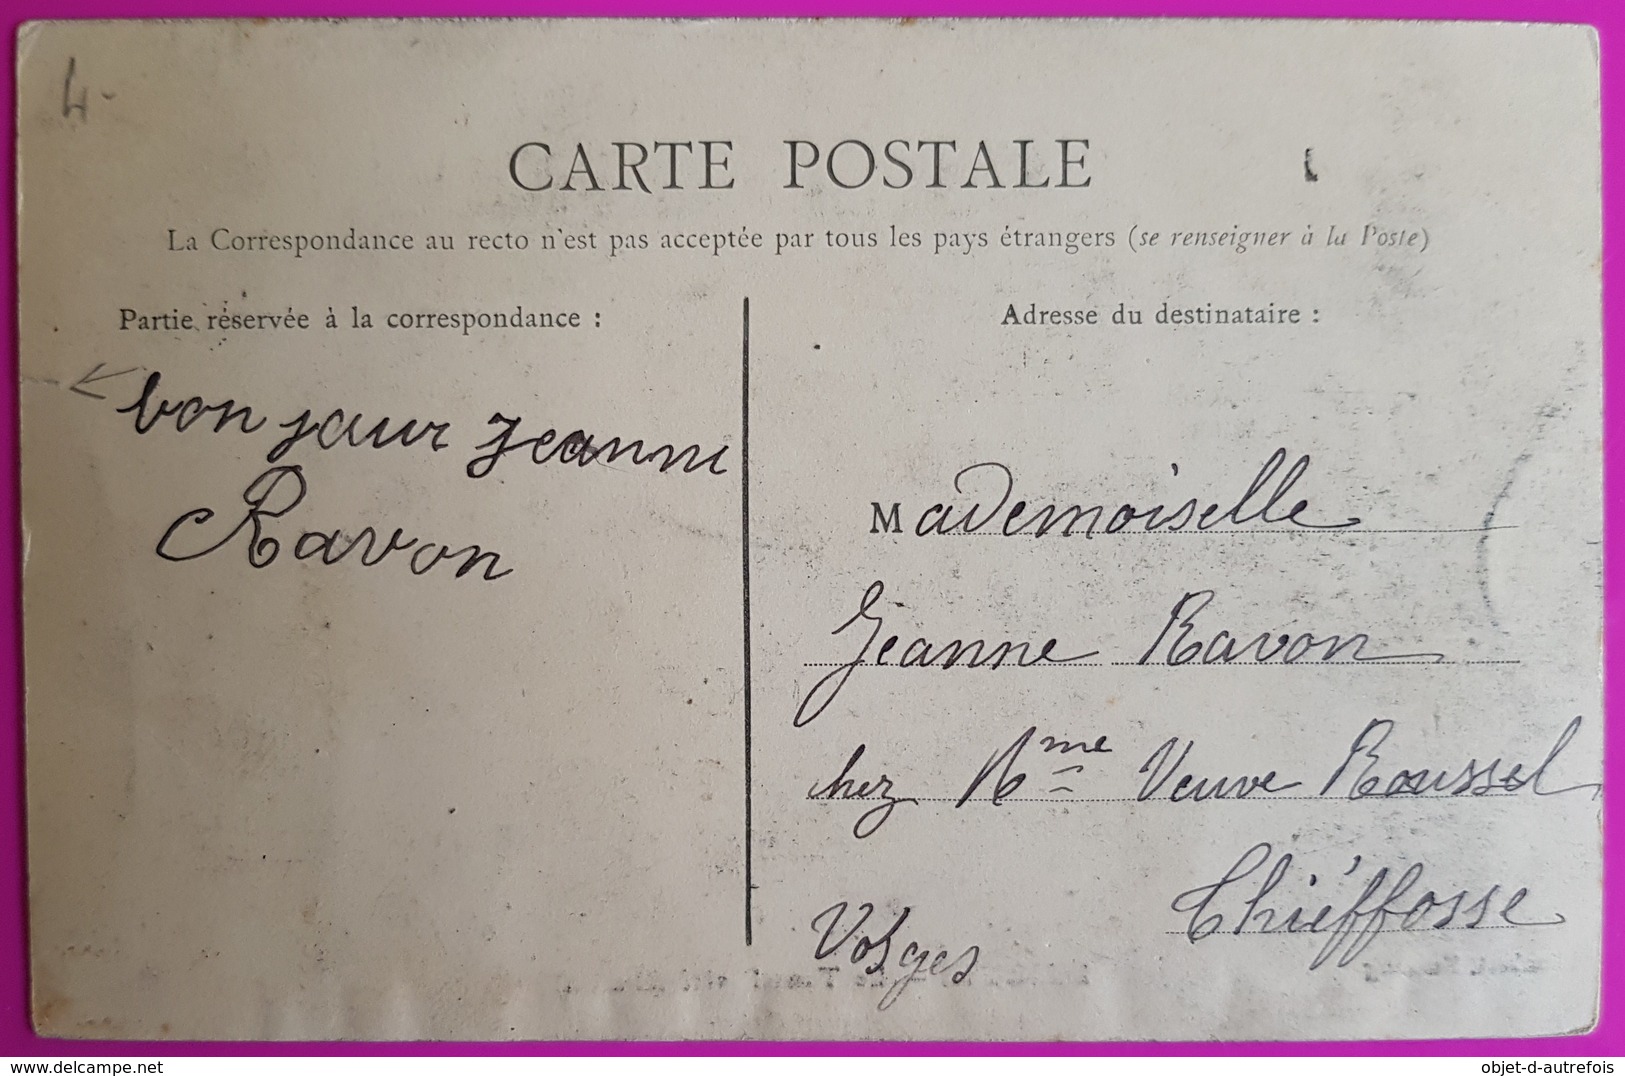 4-
CARTE POSTALE
La Correspondance au recto n'est pas acceptée par tous les pays étrangers (se renseigner à la Poste)
Partie réservée à la correspondance :
bon jour Jeanne
Ravon
Adresse du destinataire :
Mademoiselle
Jeanne Ravon
chez Mme Veuve Roussel
Thiéffosse
Vosges
objet-d-autrefois